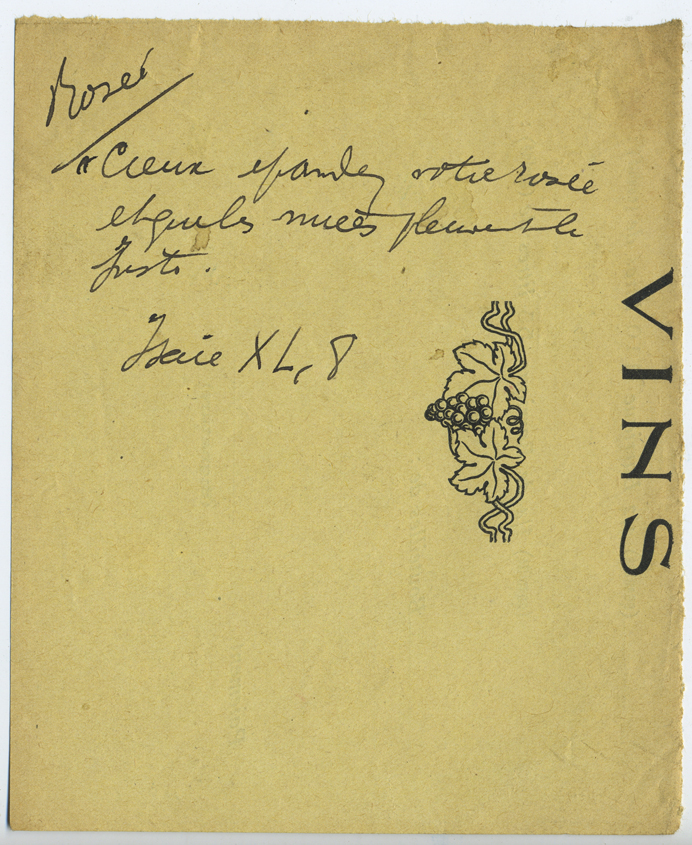 Rosée
"Cieux épandez votre rosée
et que les nuées pleuvent le
Juste.
Isaïe XL, 8
VINS